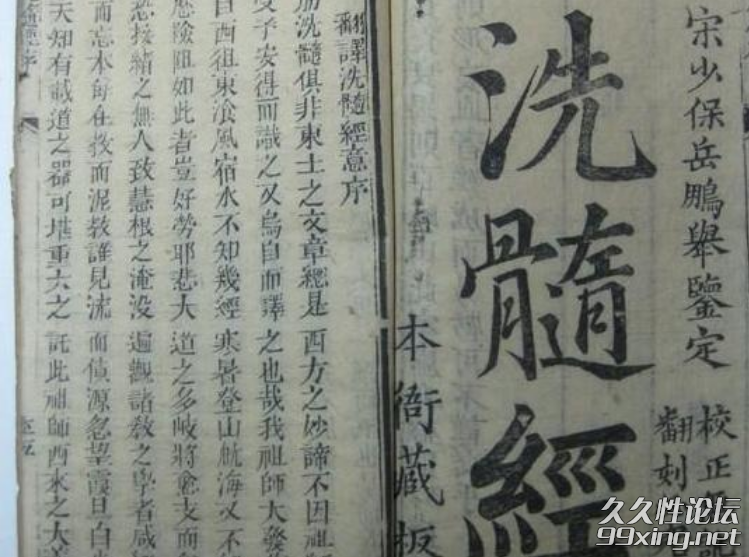 宋少保岳鵬舉鑒定
校正
翻刻
洗髓經
本衙藏板
翻譯洗髓經意序
筋洗髓俱非東土之文章總是西方之妙諦不因祖
子安得而識之又烏自而譯之也哉我祖師大發
自西徂東飡風宿水不知幾經寒暑登山航海又不
險阻如此者豈好勞耶悲大道之多岐將愈支而
恐接緒之無人致慧根之淹没遍觀諸教之學者咸
而忘本每在教而泥教誰見流而偵源忽望震旦白
天知有載道之器可堪重大之託此祖師西來之大
經序
久久性论坛
99xing.net